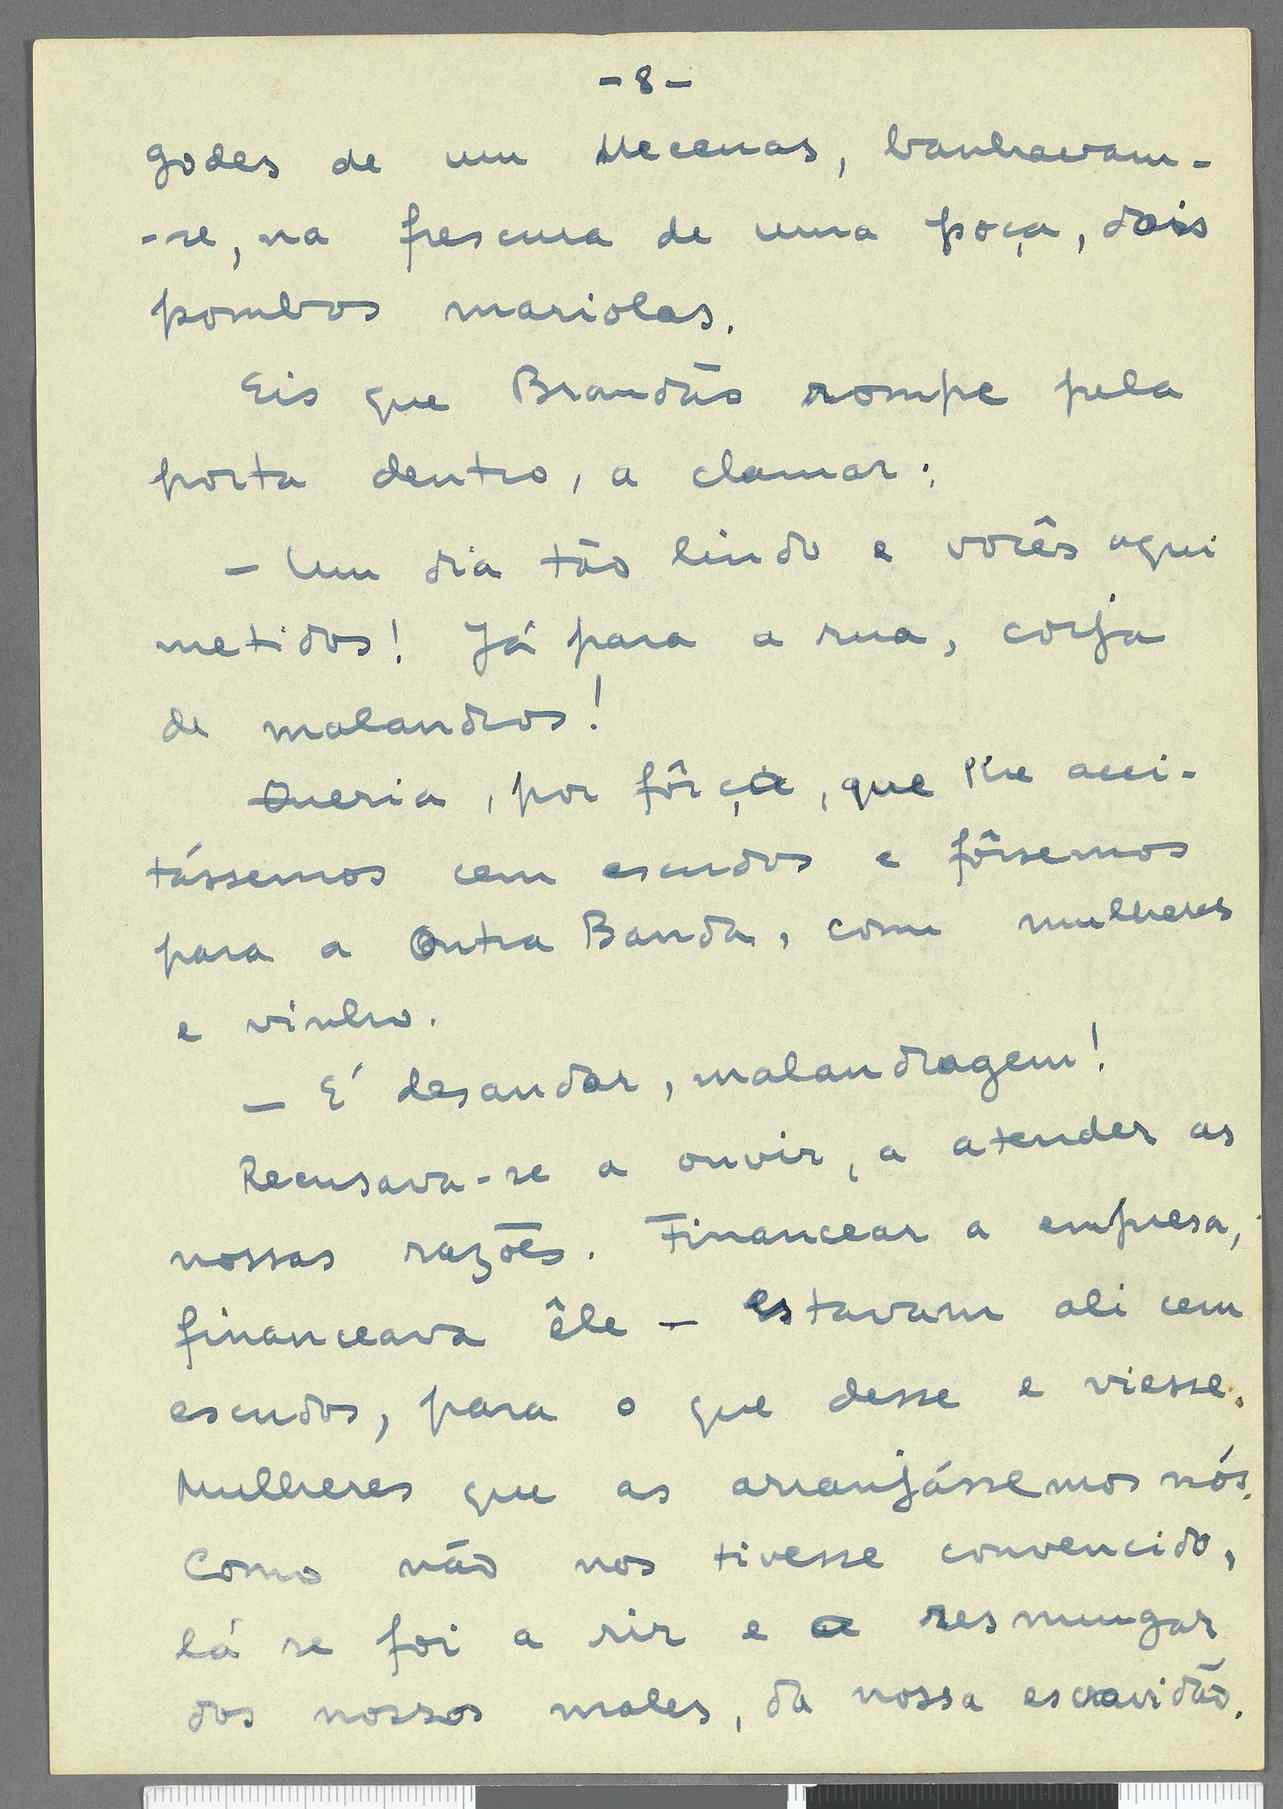 - 8 -
godes de um Mecenas, banhavam-
-se, na frescura de uma poça, dois
pombos mariolas.
Eis que Brandão rompe pela
porta dentro, a clamar:
- Um dia tão lindo e vocês aqui
metidos! Já para a rua, corja
de malandros!
Queria, por fôrça, que lhe acei-
tássemos cem escudos e fôssemos
para a Outra Banda, com mulheres
e vinho.
- É desandar, malandragem!
Recusava-se a ouvir, a atender as
nossas razões. Financear a empresa,
financeava êle - estavam ali cem
escudos, para o que desse e viesse.
Mulheres que as arranjássemos nós.
Como não nos tivesse convencido,
lá se foi a rir e a resmungar
dos nossos males, da nossa escravidão.